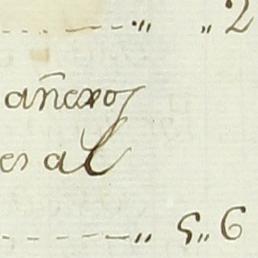 ----„ „ 2
añexos
es al
-----„ 5„ 6